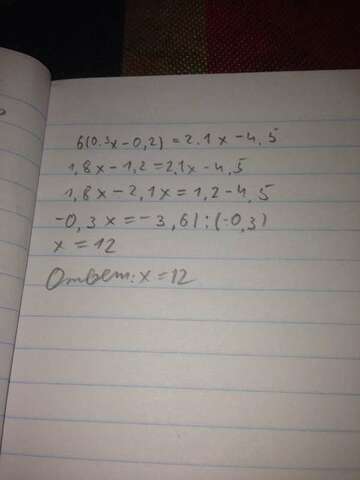 6(0.3x-0,2)=2.1x-4,5
1,8x-1,2=2,1x-4,5
1,8x-2,1x=1,2-4,5
-0,3x=-3,6|:(-0,3)
x=12
Ответ: x=12